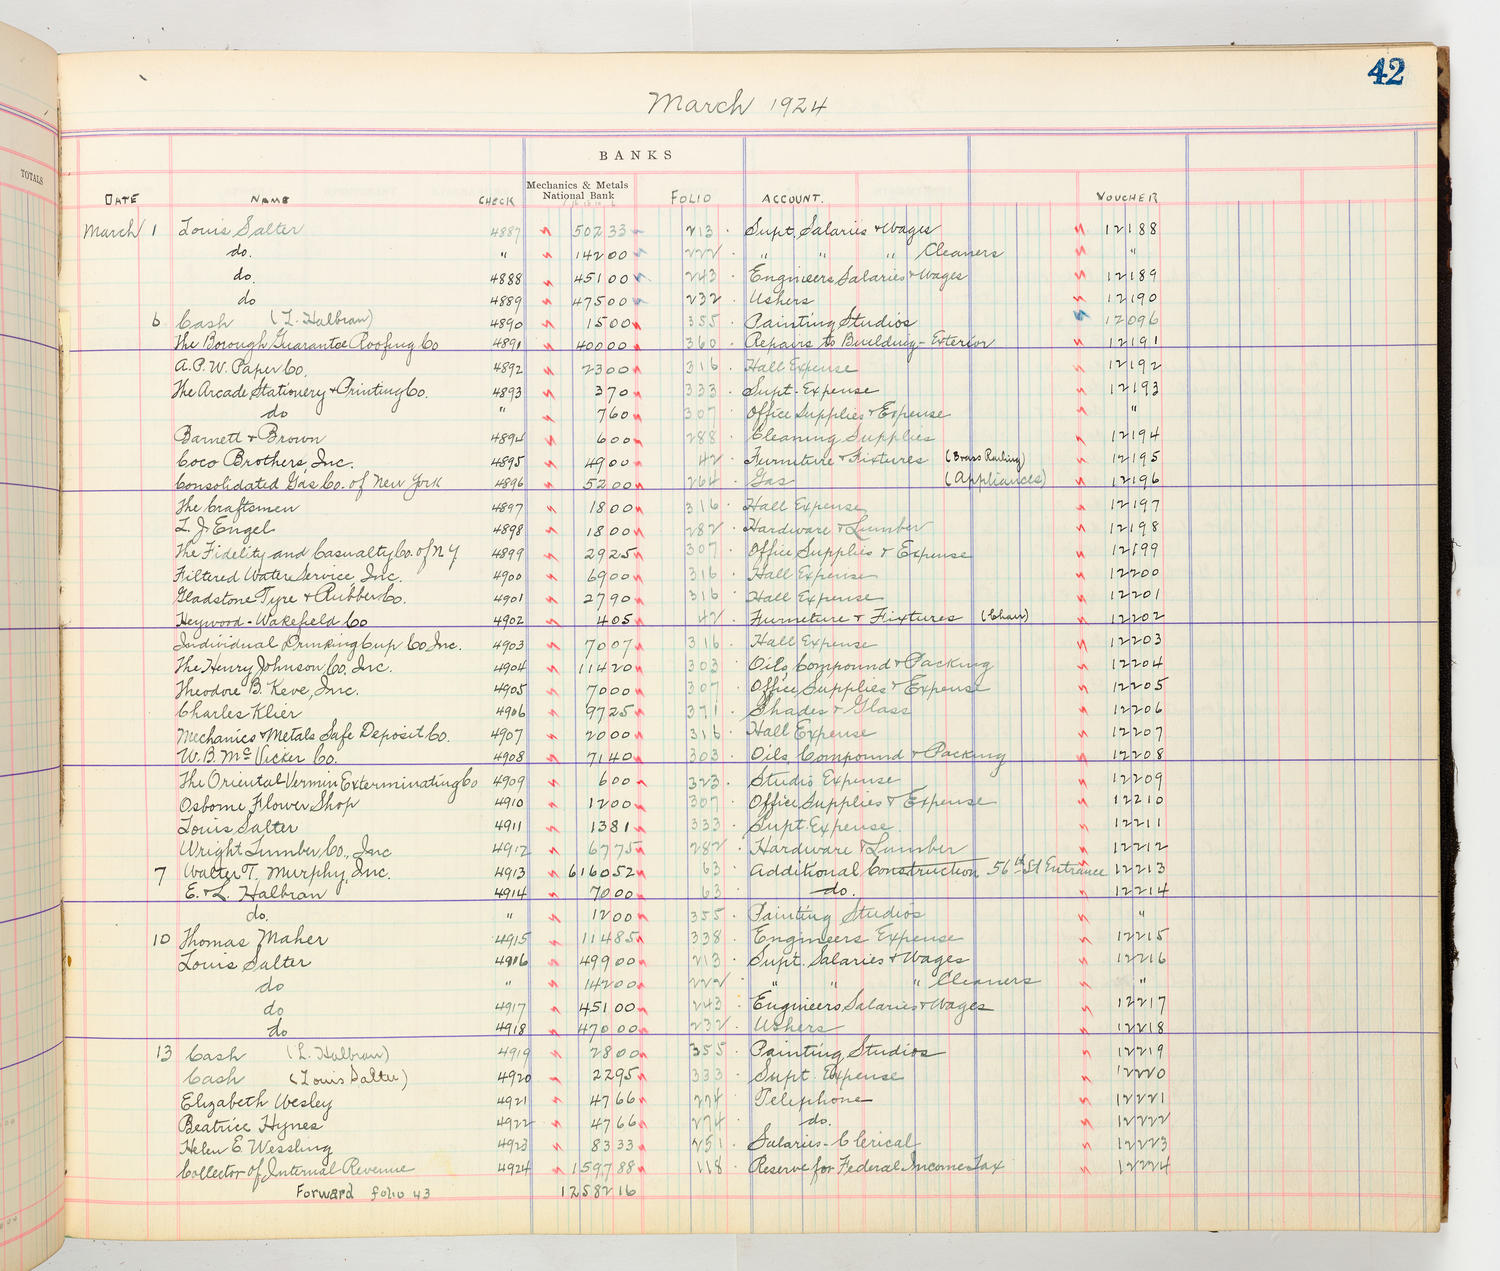 42
March 1924
TOTALS
BANKS
DATE NAME CHECK Mechanics & Metals National Bank FOLIO ACCOUNT. VOUCHER
March 1 Louis Salter 4887 502 33 213 Supt. Salaries & Wages 12188
do. " 142 00 222 " " " Cleaners "
do. 4888 451 00 243 Engineers Salaries & Wages 12189
do 4889 475 00 232 Ushers 12190
6 Cash (L. Halbran) 4890 15 00 355 Painting Studios 12096
The Borough Guarantee Roofing Co 4891 400 00 360 Repairs to Building - Exterior 12191
A.P.W. Paper Co. 4892 23 00 316 Hall Expense 12192
The Arcade Stationery & Printing Co. 4893 3 70 333 Supt. Expense 12193
do " 7 60 307 Office Supplies & Expense "
Barnett & Brown 4894 6 00 288 Cleaning Supplies 12194
Coco Brothers, Inc. 4895 49 00 42 Furniture & Fixtures (Brass Railing) 12195
Consolidated Gas Co. of New York 4896 52 00 264 Gas (Appliances) 12196
The Craftsmen 4897 18 00 316 Hall Expense 12197
L. J. Engel 4898 18 00 282 Hardware & Lumber 12198
The Fidelity and Casualty Co. of N Y 4899 29 25 307 Office Supplies & Expense 12199
Filtered Water Service, Inc. 4900 69 00 316 Hall Expense 12200
Gladstone Tyre & Rubber Co. 4901 27 90 316 Hall Expense 12201
Heywood - Wakefield Co 4902 4 05 42 Furneture & Fixtures (Chair) 12202
Individual Drinking Cup Co, Inc. 4903 70 07 316 Hall Expense 12203
The Henry Johnson Co, Inc. 4904 114 20 303 Oils, Compound & Packing 12204
Theodore B. Keve, Inc. 4905 70 00 307 Office Supplies & Expense 12205
Charles Klier 4906 97 25 371 Shades & Glass 12206
Mechanics & Metals Safe Deposit Co. 4907 20 00 316 Hall Expense 12207
W. B. McVicker Co. 4908 71 40 303 Oils, Compound & Packing 12208
The Oriental Vermin Exterminating Co 4909 6 00 323 Studio Expense 12209
Osborne Flower Shop 4910 12 00 307 Office Supplies & Expense 12210
Louis Salter 4911 13 81 333 Supt. Expense 12211
Wright Lumber, Co., Inc 4912 67 75 282 Hardware & Lumber 12212
7 Walter T. Murphy, Inc. 4913 6160 52 63 Additional Construction 56th St Entrance 12213
E. & L. Halbran 4914 70 00 63 do. 12214
do. " 12 00 355 Painting Studios "
10 Thomas Maher 4915 114 85 338 Engineers Expense 12215
Louis Salter 4916 499 00 213 Supt. Salaries & Wages 12216
do " 142 00 222 " " " Cleaners "
do 4917 451 00 243 Engineers Salaries & Wages 12217
do 4918 470 00 232 Ushers 12218
13 Cash (L. Halbran) 4919 28 00 355 Painting Studios 12219
Cash (Louis Salter) 4920 22 95 333 Supt. Expense 12220
Elizabeth Wesley 4921 47 66 274 Telephone 12221
Beatrice Hynes 4922 47 66 274 do. 12222
Helen E. Wessling 4923 83 33 251 Salaries - Clerical 12223
Collector of Internal Revenue 4924 1597 88 118 Reserve for Federal Income Tax 12224
Forward folio 43 12582 16